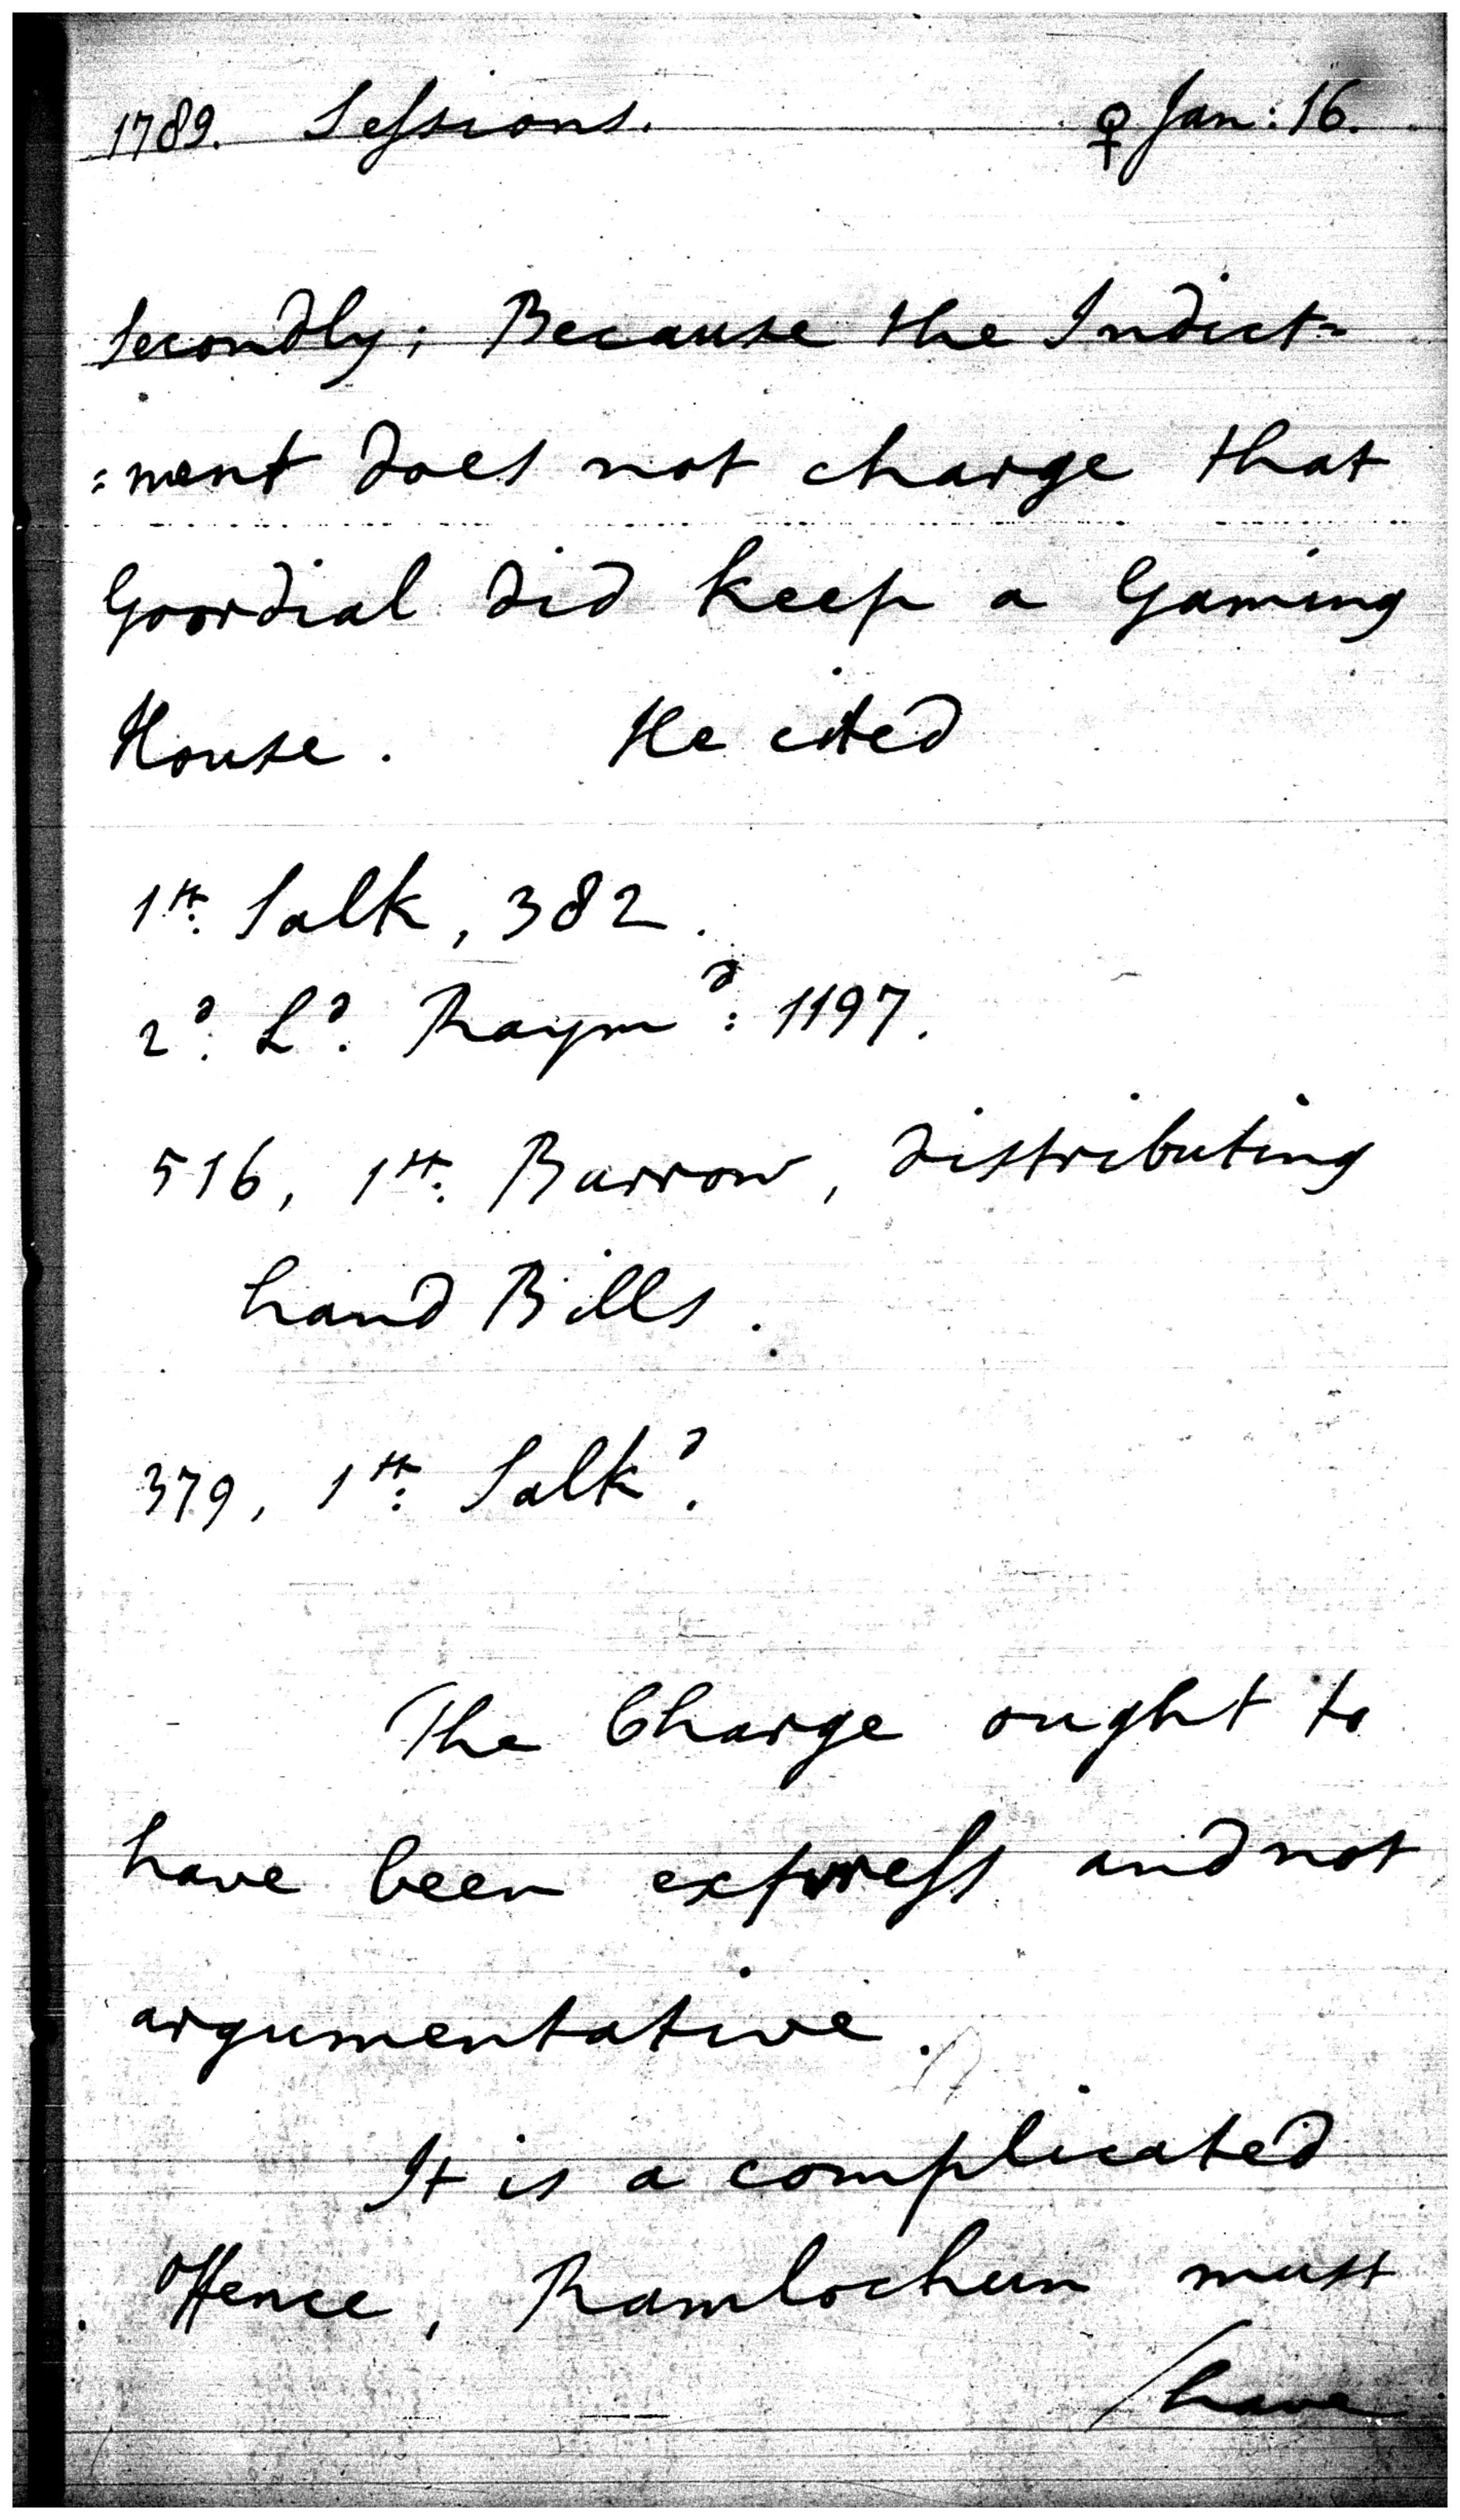 1789. Sessions. ♀ Jan: 16.
Secondly; Because the Indict=
=ment does not charge that
Goordial did keep a Gaming
House. He cited
1st: Salk, 382.
2d: Ld: Raymd: 1197.
516, 1st: Burrow, distributing
hand Bills.
379, 1st: Salkd.
The Charge ought to
have been express and not
argumentative.
It is a complicated
Offence, Ramlochun must
/have